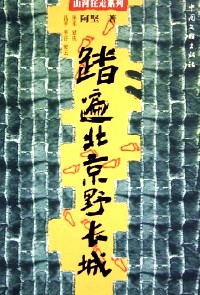 山河狂走系列
阿坚 著
踏遍北京野长城
中国文联出版社